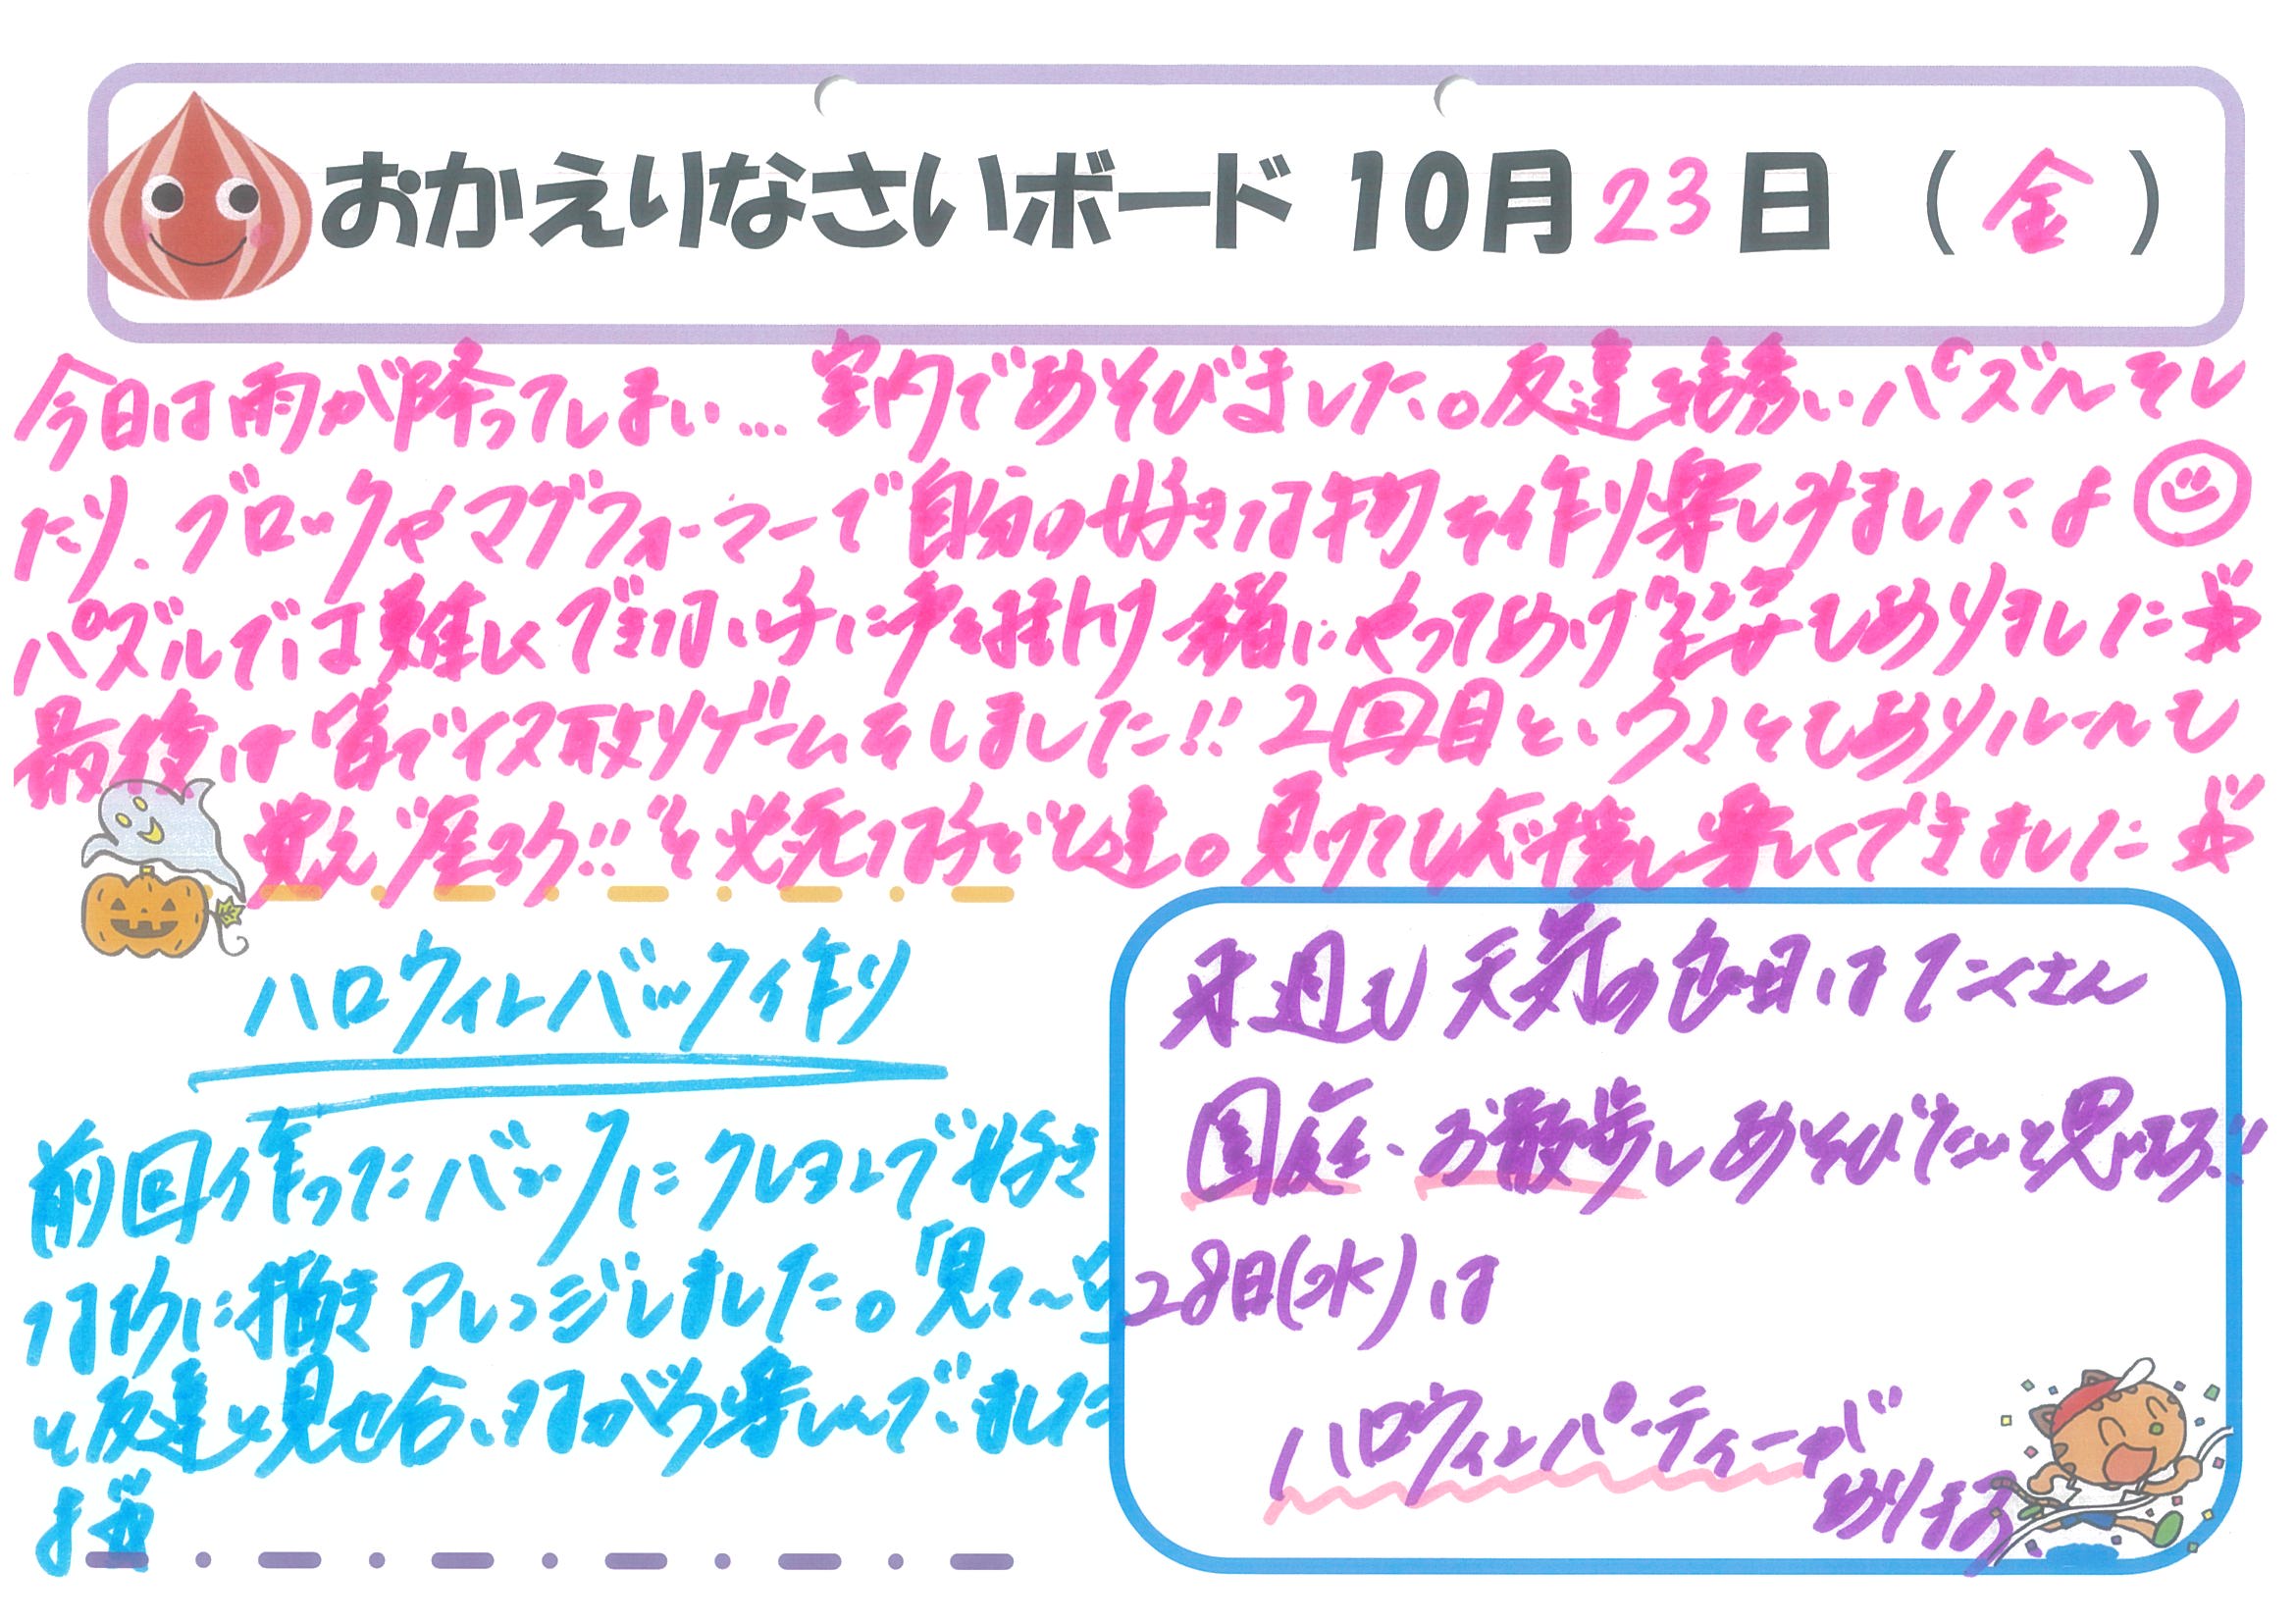 おかえりなさいボード 10月23日（金）
今日は雨が降ってしまい…室内であそびました。友達を誘いパズルをし
たり、ブロックやマグフォーマーで自分の好きな物を作り楽しみましたよ
パズルでは難しくできない子に声を掛け一緒にやってあげる姿もありました☆
最後は皆でイス取りゲームをしました!! 2回目ということもありルールも
覚え"座るぞ!!"と必死な子ども達。負けても応援し楽しくできました☆
ハロウィンバック作り
前回作ったバックにクレヨンで好き
な物に描きアレンジしました。「見て〜」
と友達と見せ合いながら楽しんでいました
よ☆
来週も天気の良い日はたくさん
園庭・お散歩しあそびたいと思います!!
28日(水)は
ハロウィンパーティーが
あります